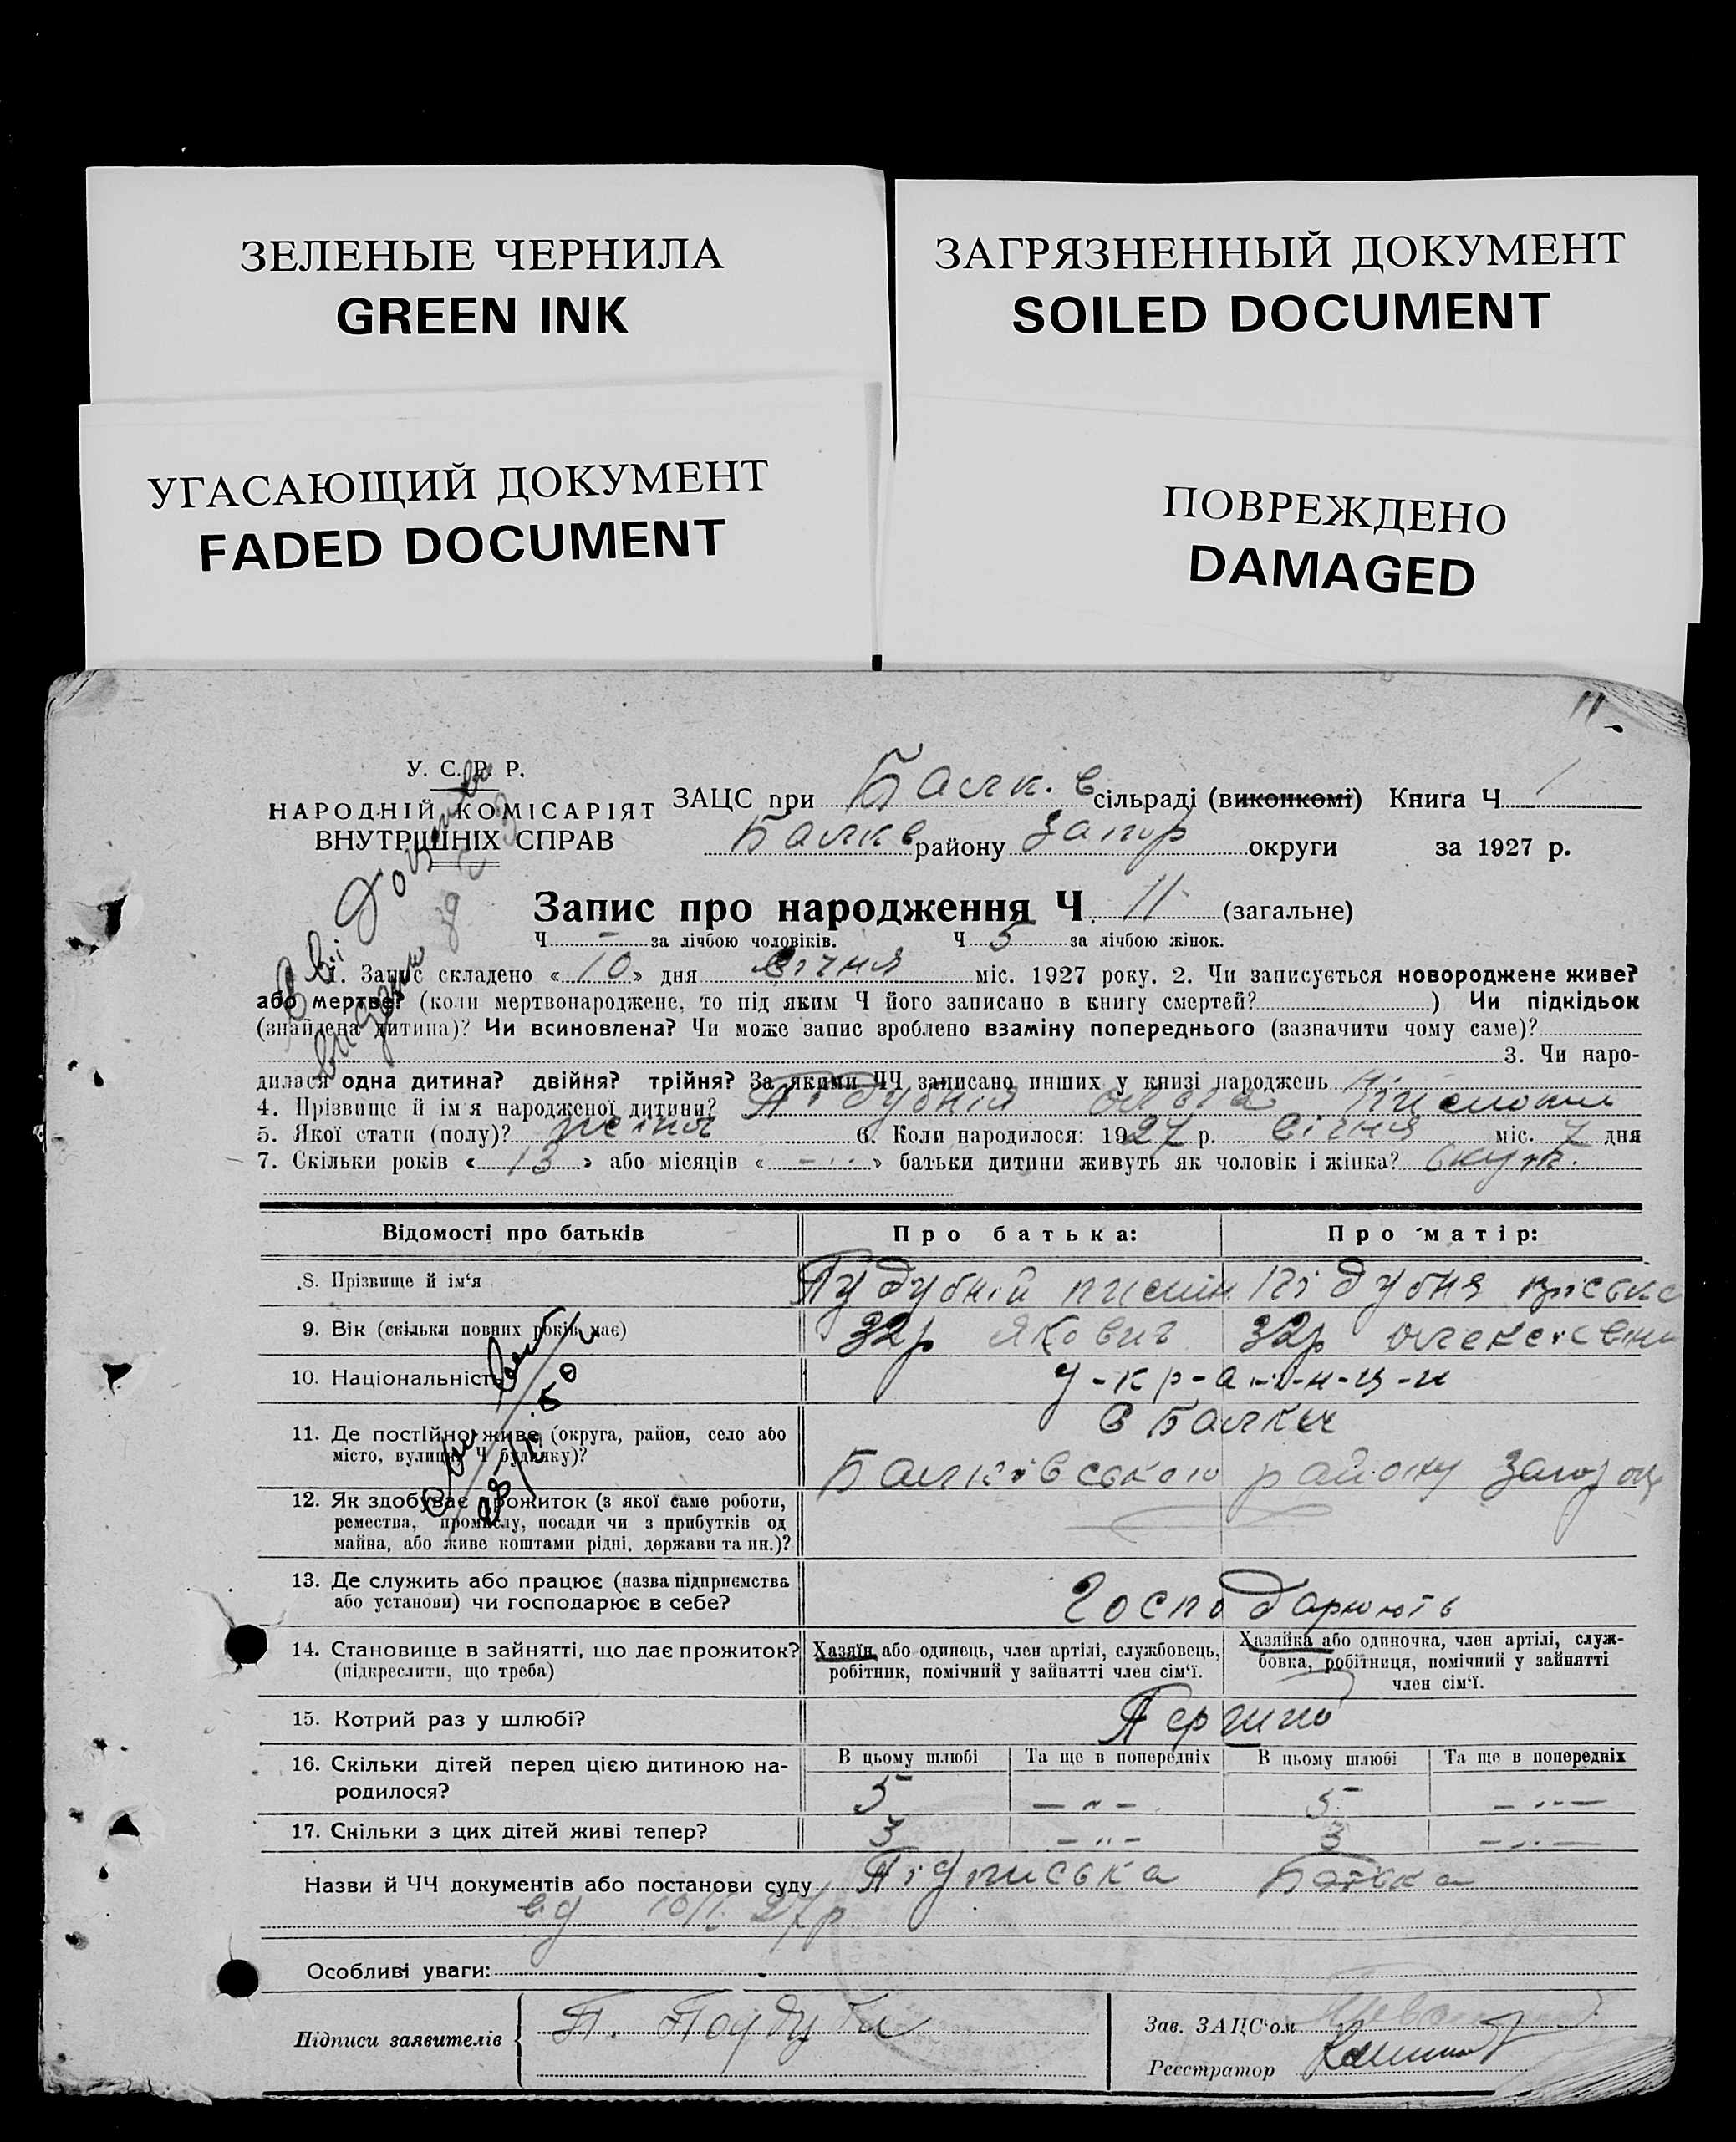 ЗЕЛЕНЫЕ ЧЕРНИЛА
GREEN INK
ЗАГРЯЗНЕННЫЙ ДОКУМЕНТ
SOILED DOCUMENT
УГАСАЮЩИЙ ДОКУМЕНТ
FADED DOCUMENT
ПОВРЕЖДЕНО
DAMAGED
11
У. С. Р. Р.
НАРОДНІЙ КОМІСАРІЯТ
ВНУТРІШНІХ СПРАВ
ЗАЦС при Балк. в сільраді (виконкомі) Книга Ч. 1
Балкв району Запор округи за 1927 р.
Запис про народження Ч. 11 (загальне)
Ч. — за лічбою чоловіків. Ч. 5 за лічбою жінок.
1. Запис складено « 10 » дня Січня міс. 1927 року. 2. Чи записується новороджене живе?
або мертве? (коли мертвонароджене, то під яким Ч його записано в книгу смертей? ) Чи підкідьок
(знайдена дитина)? Чи всиновлена? Чи може запис зроблено взаміну попереднього (зазначити чому саме)?
3. Чи наро-
дилася одна дитина? двійня? трійня? За якими ЧЧ записано инших у книзі народжень
4. Прізвище й ім'я народженої дитини? Підубня Ольга
5. Якої статі (полу)? жіноч 6. Коли народилося: 1927 р. Січня міс. 7 дня
7. Скільки років « 13 » або місяців « — » батьки дитини живуть як чоловік і жінка? вкупі.
Відомості про батьків
Про батька:
Про матір:
8. Прізвище й ім'я
Пудубній Підубня
9. Вік (скільки повних років має)
32р Якович 32р
10. Національність
у-кр-а-ї-н-ц-и
11. Де постійно живе (округа, район, село або
місто, вулиця, Ч будинку)?
с Балки
Балківського району
12. Як здобуває прожиток (з якої саме роботи,
ремества, промислу, посади чи з прибутків од
майна, або живе коштами рідні, держави та ин.)?
13. Де служить або працює (назва підприємства
або установи) чи господарює в себе?
Господарюють
14. Становище в зайнятті, що дає прожиток?
(підкреслити, що треба)
Хазяїн або одинець, член артілі, службовець,
робітник, помічний у зайнятті член сім'ї.
Хазяйка або одиночка, член артілі, служ-
бовка, робітниця, помічний у зайнятті
член сім'ї.
15. Котрий раз у шлюбі?
16. Скільки дітей перед цією дитиною на-
родилося?
В цьому шлюбі Та ще в попередніх В цьому шлюбі Та ще в попередніх
5 — " — 5 — " —
17. Скільки з цих дітей живі тепер?
3 — " — 3 — " —
Назви й ЧЧ документів або постанови суду Підписька Батька
від 10/I 27р
Особливі уваги:
Підписи заявителів
Зав. ЗАЦС'ом
Реєстратор